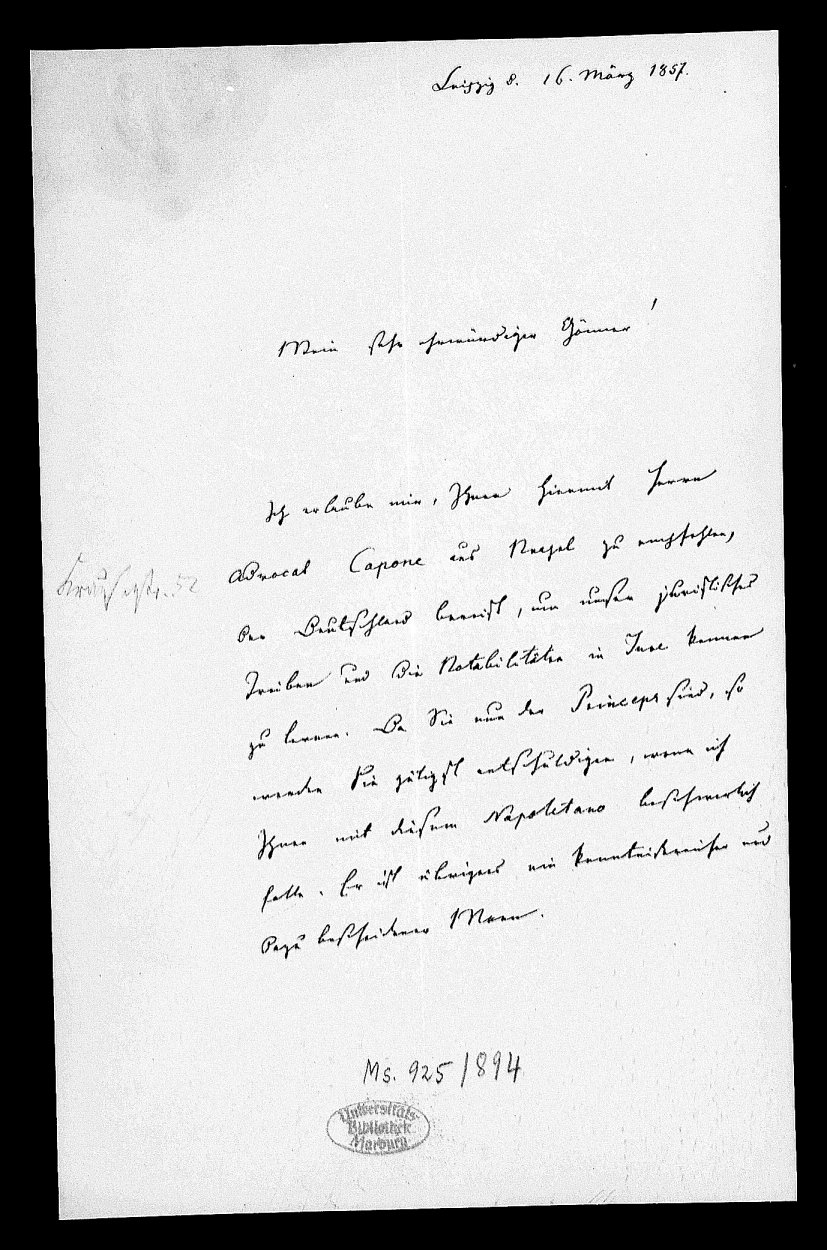 Leipzig d. 16. März 1857.
Mein sehr ehrwürdiger Gönner!
Ich erlaube mir, Ihnen hiermit Herrn
Advocat Capone aus Neapel zu empfehlen,
der Deutschland bereist, um unser juristisches
Treiben und die Notabilitäten in Jure kennen
zu lernen. Da Sie nun der Princeps sind, so
werden Sie gütigst entschuldigen, wenn ich
Ihnen mit diesem Napolitano beschwerlich
falle. Er ist übrigens ein kenntnißreicher und
dazu bescheidener Mann.
Ms. 925/894
Universitäts
Bibliothek
Marburg